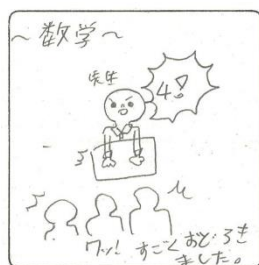 ～数学～
先生
4!
ワッ! すごくおどろき
ました。